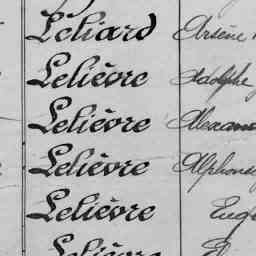 Léliard Arsène
Lelièvre Adolphe
Lelièvre
Lelièvre Alphonse
Lelièvre
Lelièvre